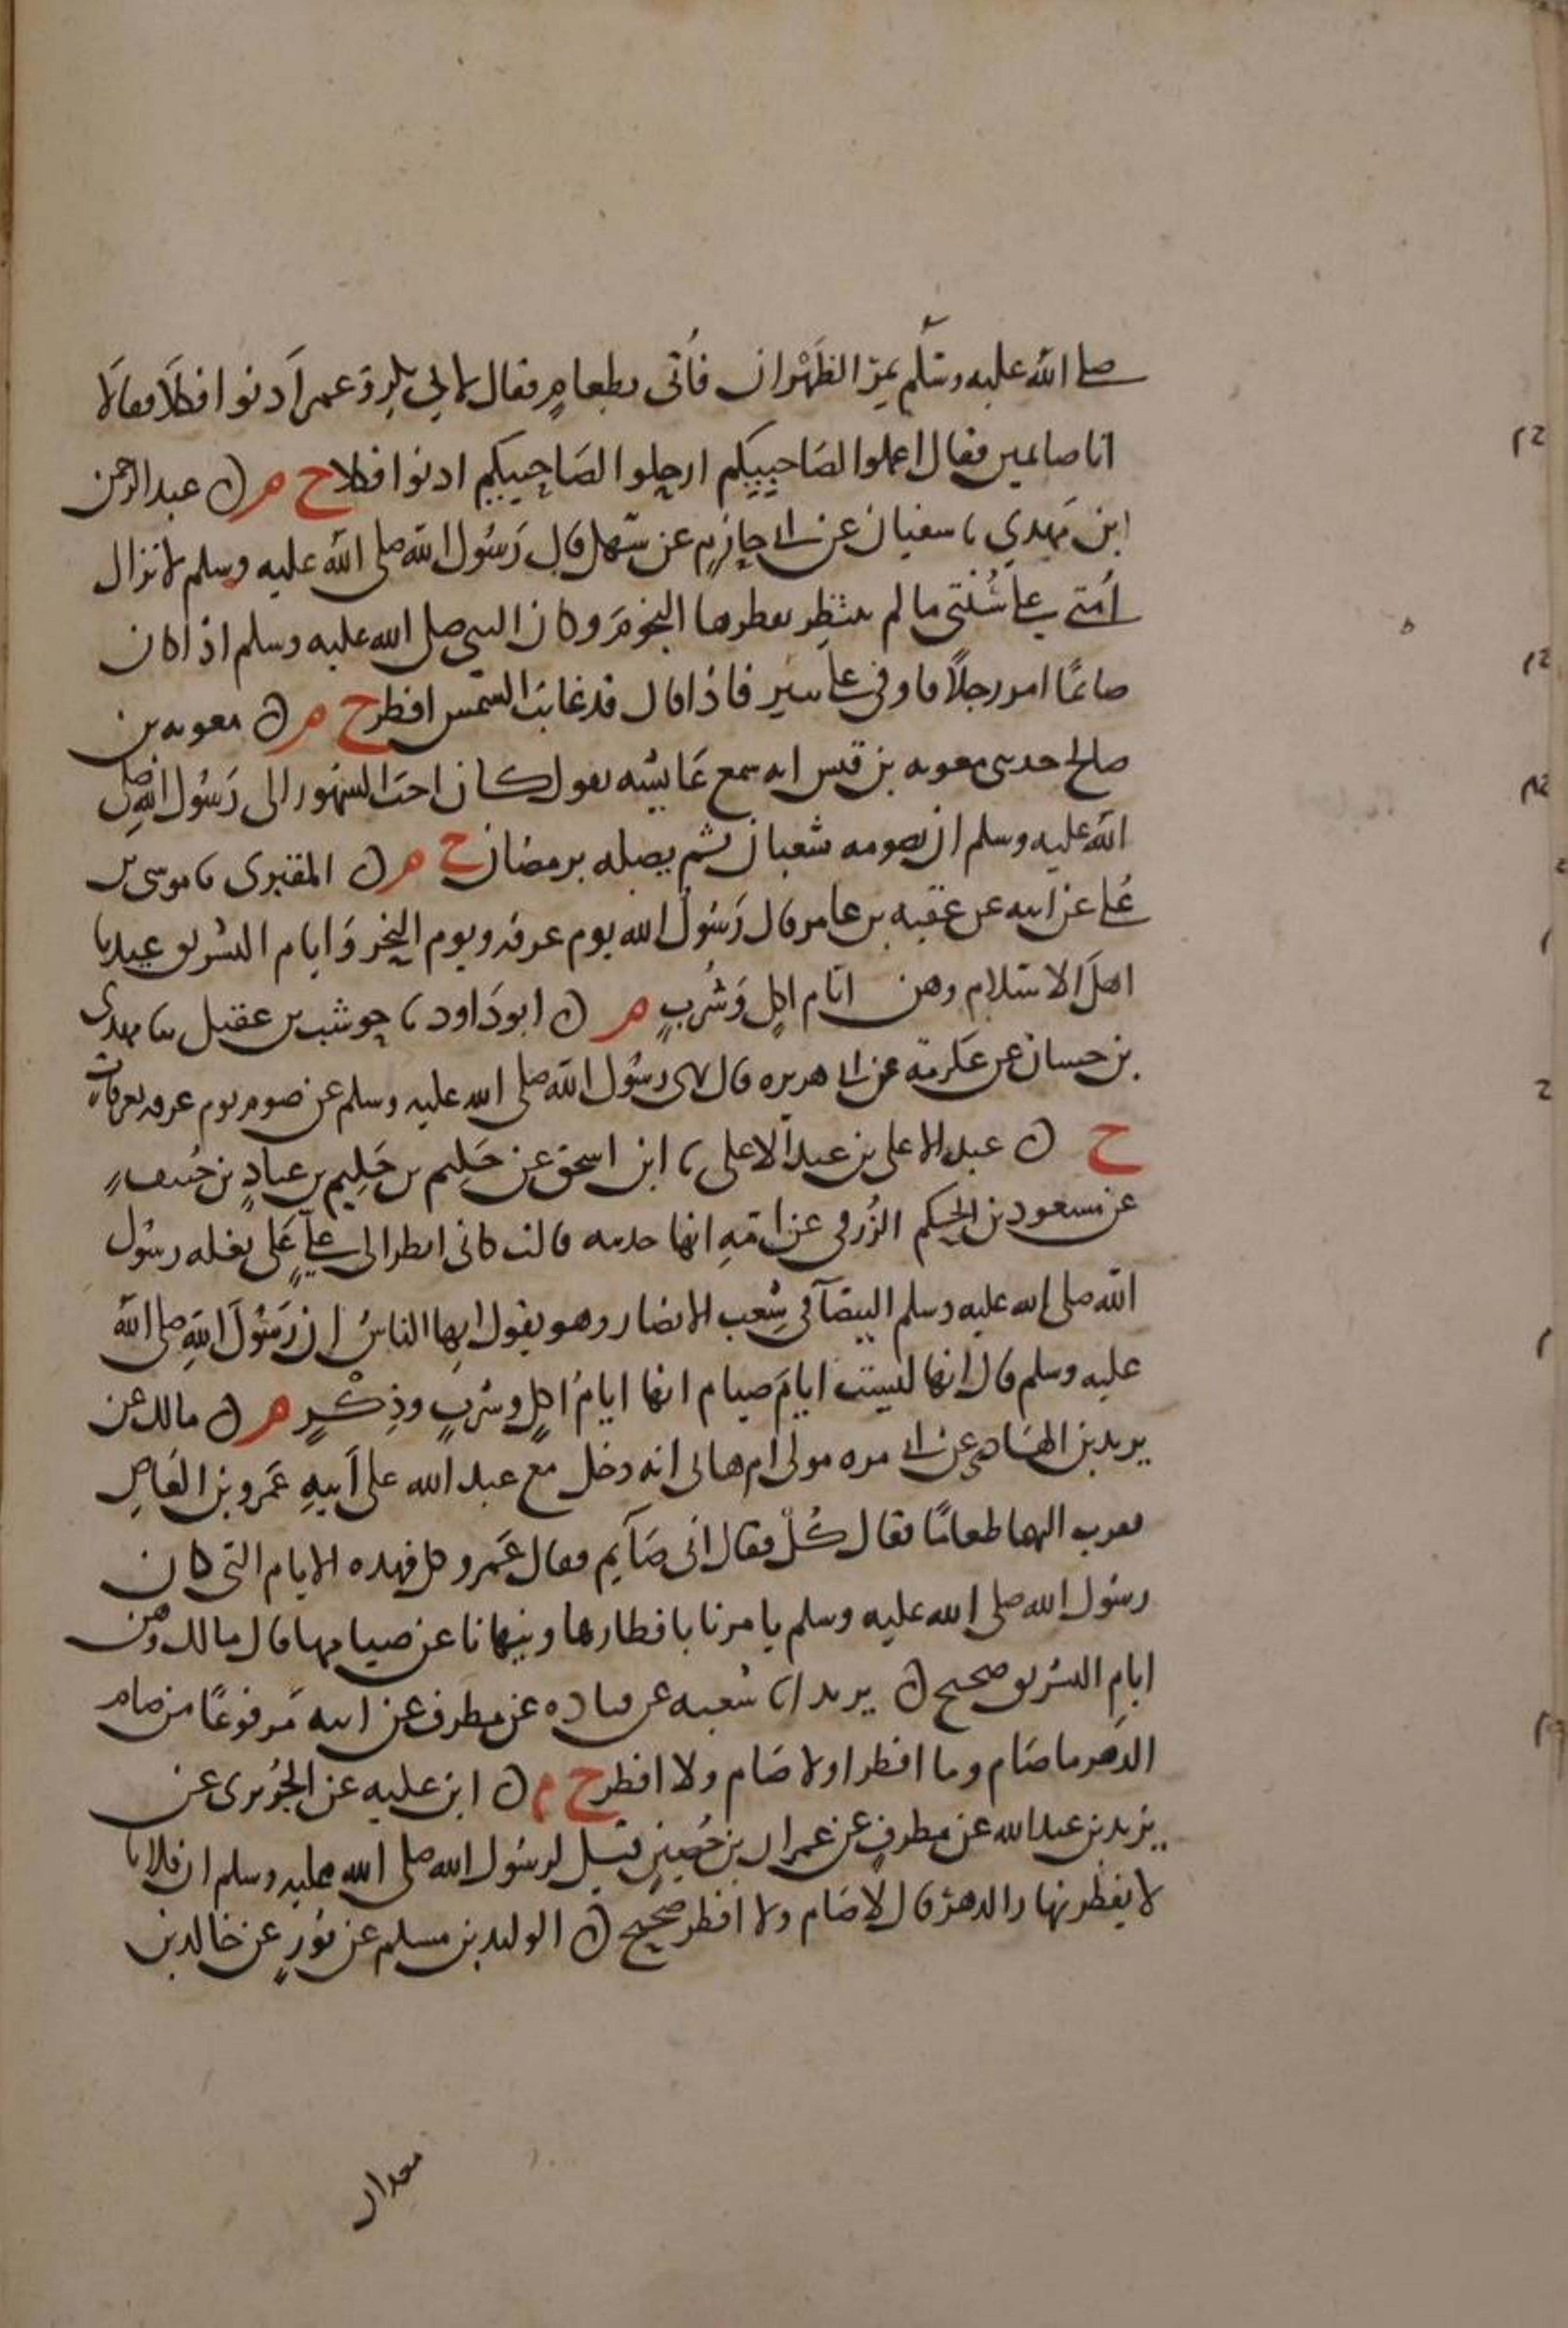 صلى الله عليه وسلم بمر الظهران فأتى بطعام فقال لابي بكر وعمر ادنوا فكلا فقالا
انا صايمين فقال اعملوا لصاحبيكم ارحلوا لصاحبيكم ادنوا فكلا ح م ن عبد الرحمن
ابن مهدي نا سفيان عن ابي حازم عن سهل قال رسول الله صلى الله عليه وسلم لا تزال
امتي على سنتي ما لم تنتظر بفطرها النجوم وكان النبي صلى الله عليه وسلم اذا كان
صائما امر رجلا فاوفى على نشز فاذا قال قد غابت الشمس افطر ح م ن معويه بن
صالح حدثني معويه بن قيس انه سمع عايشه تقول كان احب الشهور الى رسول الله صلى
الله عليه وسلم ان يصومه شعبان ثم يصله برمضان ح م ن المقبرى نا موسى بن
علي عن ابيه عن عقبه بن عامر قال رسول الله يوم عرفه ويوم النحر وايام التشريق عيدنا
اهل الاسلام وهن ايام اكل وشرب م ن ابو داود نا حوشب بن عقيل نا مهدى
بن حسان عن عكرمة عن ابي هريره قال نهى رسول الله صلى الله عليه وسلم عن صوم يوم عرفه بعرفات
ح ن عبد الاعلى بن عبد الاعلى نا ابن اسحق عن حكيم بن حكيم بن عباد بن حنيف
عن مسعود بن الحكم الزرقي عن امه انها حدثته قالت كاني انظر الى علي على بغله رسول
الله صلى الله عليه وسلم البيضا في شعب الانصار وهو يقول ايها الناس ان رسول الله صلى الله
عليه وسلم قال انها ليست ايام صيام انها ايام اكل وشرب وذكر م ن مالك عن
يزيد بن الهاد عن ابي مره مولى ام هاني انه دخل مع عبد الله على ابيه عمرو بن العاص
فقرب اليهما طعاما فقال كل فقال اني صايم فقال عمرو كل فهذه الايام التي كان
رسول الله صلى الله عليه وسلم يامرنا بافطارها وينهانا عن صيامها قال مالك وهن
ايام التشريق صحيح ن يزيد انا شعبه عن قتاده عن مطرف عن ابيه مرفوعا من صام
الدهر ما صام وما افطر او لا صام ولا افطر ح م ن ابن عليه عن الجريرى عن
يزيد بن عبد الله عن مطرف عن عمران بن حصين قيل لرسول الله صلى الله عليه وسلم ان فلانا
لا يفطر نهارا الدهر قال لا صام ولا افطر صحيح ن الوليد بن مسلم عن ثور عن خالد بن
معدان